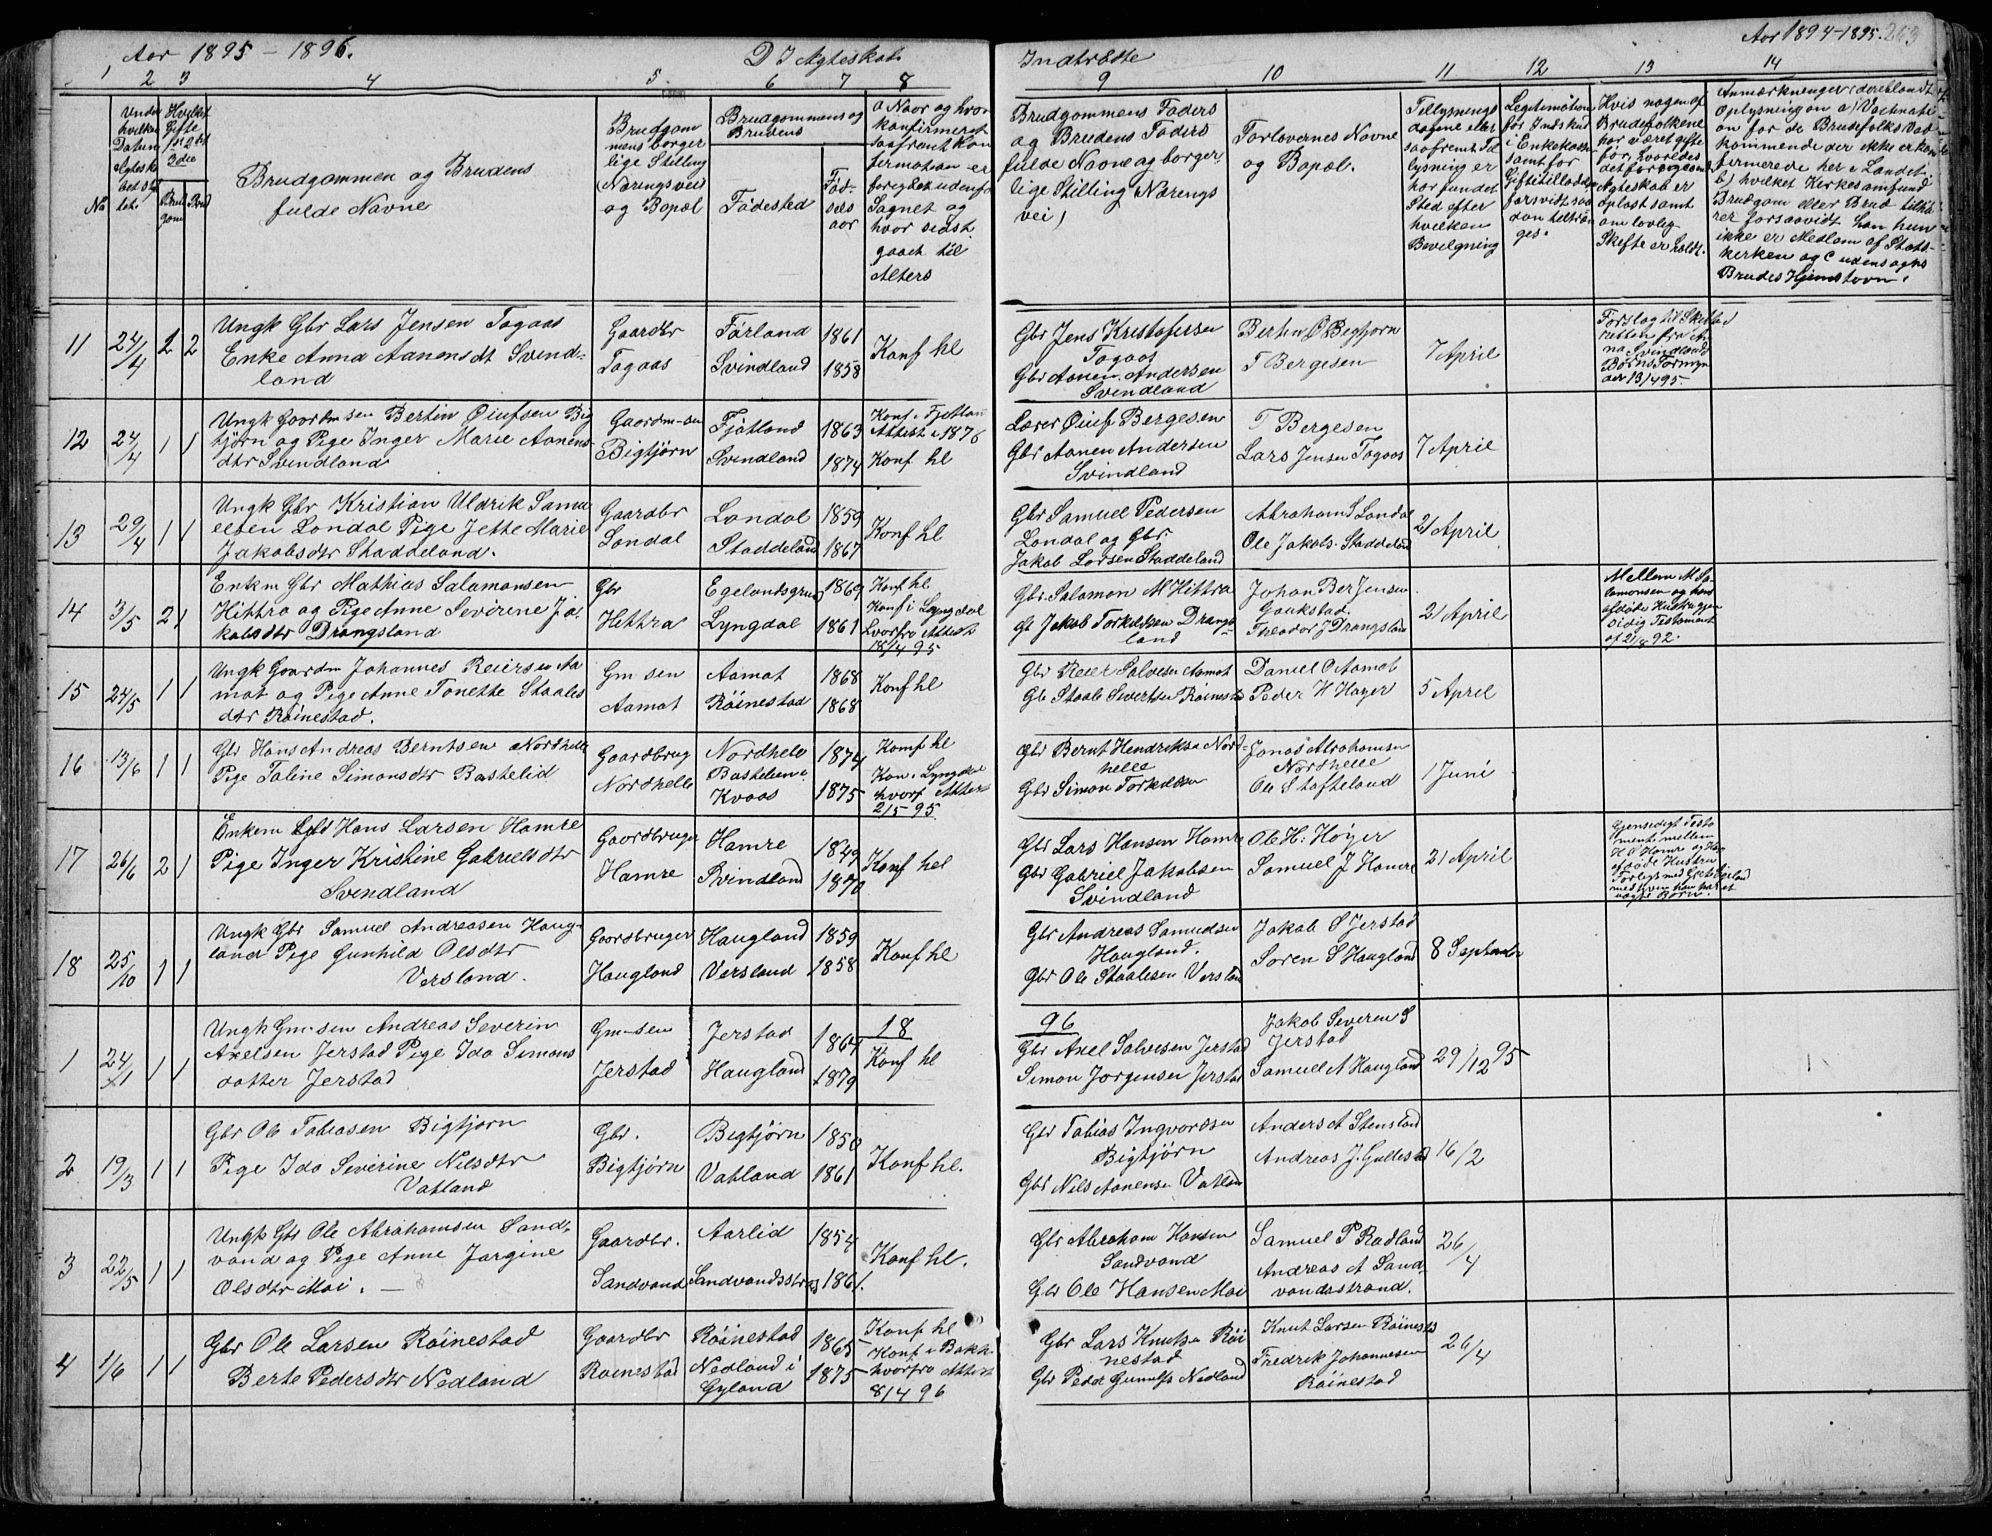 Aar 1895 - 1896.
D I Ægteskab
Indtrædte
Aar 1894-1895. 263
1 2 3 4 5 6 7 8 9 10 11 12 13 14
No
Under
hvilken
Datum
Ægteska
bet stif
tet.
Hvilket
Gifte
1ste 2det
3die
Brud
gom
Brud
Brudgommen og Brudens
fulde Navne
Brudgom
mens borger
lige Stilling
(Næringsvei)
og Bopæl
Brudgommens og
Brudens
Fødested
Fød-
sels
aar
a Naar og hvor
konfirmeret
saafremt kon
fermation er
foregået udenfor
Sognet og
hvor sidst
gaaet til
Alters
Brudgommens Faders
og Brudens Faders
fulde Navne og borger
lige Stilling (Nærings
vei)
Forlovernes Navne
og Bopæl.
Tillysnings
dagene eller
saafremt Til
lysning er
har fundet
Sted efter
hvilken
Bevilgning
Legitimation
for Indskud
i Enkekassen
samt for
Giftetilladelse
forsvidt saa
dan tiltræn
ges.
Hvis nogen af
Brudefolkene
har været gifte
før, hvorledes
det forrige
Ægteskab er
oplost samt
om lovlig
Skifte er holdt.
Anmærkninger (deriblandt
Oplysning om a) Vaccinati
on for de Brudefolks Ved
kommende der ikke er kon
fermerede her i Landet
b) hvilket Kirkesamfund
Brudgom eller Brud tilhø
rer forsaavidt han hun
ikke er Medlem af Stats-
kirken og C udensogns
Brudes Hjemstavn.
11 24/4 2 2
Ungk Gbr Lars Jensen Togaas
Enke Anna Aanensdt Svind-
land
Gaardbr
Togaas
Førland 1861
Svindland 1858
Konf hl
Gbr Jens Kristofersen
Togaas
Gbr Aanen Andersen
Svindland
Bertin O Bigtjørn
T Bergesen
7 April
Forslag til Skifted
Børns Formyn
der 13/4 95
12 24/4 1 1
Ungk Gaardm sen Bertin Øiufsen Big
tjørn og Pige Inger Marie Aanens-
dtr Svindland
Gaardm-sen
Bigtjørn
Fjotland 1863
Svindland 1874
Konf i Fjotlan
Attest i 1876
Konf hl
Lærer Øiuf Bergesen
Gbr Aanen Andersen
Svindland
T Bergesen
Lars Jensen Togaas
7 April
13 29/4 1 1
Ungk Gbr Kristian Uldrik Samu
elsen Londal Pige Jette Marie
Jakobsdtr Staddeland.
Gaardbr
Londal
Londal 1859
Staddeland 1867
Konf hl
Gbr Samuel Pedersen
Londal og Gbr.
Jakob Larsen Staddeland
Abraham S Londal
Ole Jakobs. Staddeland
21 April
14 3/5 2 1
Enkm Gbr Mathias Salamonsen
Hittra og Pige Anne Severine Ja-
kobsdtr Drangsland
Gbr
Hettra
Egelandsgrund 1869
Lyngdal 1861
Konf hl
Konf i Lyngdal
hvorfra Attest
18/4 95
Gbr Salomon M Hittra
Gb Jakob Torkildsen Drangs-
land
Johan Ber Jensen
Gaukstad.
Theodor J Drangsland
21 April
Mellem M Sa
lamonsen og hans
afdøde Hustru gjen
sidig Testament
af 21/8 92.
15 24/5 1 1
Ungk Gaardm Johannes Reiersen Aa
mot og Pige Anne Tonette Staales
dtr Røinestad.
Gm sen
Aamot
Aamot 1868
Røinestad 1868
Konf hl
Gbr Reier Salvesen Aamot
Gb Staale Sivertsen Røinestad
Daniel O Aamot
Peder H Høyer
5 April
16 13/6 1 1
Gbr Hans Andreas Berntsen Nordhelle
Pige Taline Simonsdtr Bastelid
Gaardbrug
Nordhelle
Nordhele 1874
Bastelien i
Kvaas 1875
Komf hl
Kon i Lyngdal
hvorf Attest
21/5 95
Gbr Bernt Hendriksen Nord-
helle
Gbr Simon Torkildsen
Jonas Abrahamsen
Nordhelle
Ole S Stofteland
1 Juni
17 26/6 2 1
Enkem Gbr Hans Larsen Hamre
Pige Inger Kristine Gabrielsdtr
Svindland
Gaardbruger
Hamre
Hamre 1849
Svindland 1870
Konf hel
Gbr Lars Hansen Hamre
Gbr Gabriel Jakobsen
Svindland
Ole H. Høyer
Samuel J Hamre
21 April
Gjensedigt Testa
mente mellem
H L Hamre og Han
afdøde Hustru
18 25/10 1 1
Ungk Gbr Samuel Andreasen Haug-
land Pige Gunhild Olsdtr
Versland.
Gaardbruger
Haugland
Haugland 1859
Versland 1858
Konf hl
Gbr Andreas Samuelsen
Haugland.
Gbr Ole Staalesen Versland
Jakob S Jerstad
Søren S Haugland
8 September
18 96
1 24/1 1 1
Ungk Gm-sen Andreas Severin
Axelsen Jerstad Pige Ida Simons
datter Jerstad
Gm-sen
Jerstad
Jerstad 1864
Haugland 1879
Konf hl
Gbr Axel Salvesen Jerstad
Simon Jørgensen Jerstad
Jakob Severin S
Jerstad
Samuel A Haugland
29/12 95
2 19/3 1 1
Gbr Ole Tobiasen Bigtjørn
Pige Ida Severine Nilsdtr
Vatland
Gbr.
Bigtjørn
Bigtjørn 1850
Vatland 1861
Konf hl.
Gbr Tobias Ingvardsen
Bigtjørn
Gbr Nils Aanensen Vatland
Anders A Stensland
Andreas J. Gullestad
16/2
3 22/5 1 1
Ungk Gbr Ole Abrahamsen Sand-
vand og Pige Anne Jørgine
Olsdtr Moi.
Gaardbr.
Sandvand
Aarlid 1854
Sandvandsstrand 1861.
Konf hl.
Gbr Abraham Hansen
Sandvand
Gbr Ole Hansen Moi
Samuel P Radland
Andreas A Sand-
vandsstrand.
26/4
4 1/6 1 1
Gbr Ole Larsen Røinestad
Berte Pedersdtr Nedland
Gaardbr
Røinestad
Røinestad 1865
Nedland i
Gyland 1875
Konf hl
Konf i Bakke
hvorfra Attest
8/4 96
Gbr Lars Knutsen Røi
nestad
Gbr Peder Gunulfs Nedland
Knut Larsen Røinestad
Fredrik Johannesen
Røinestad
26/4